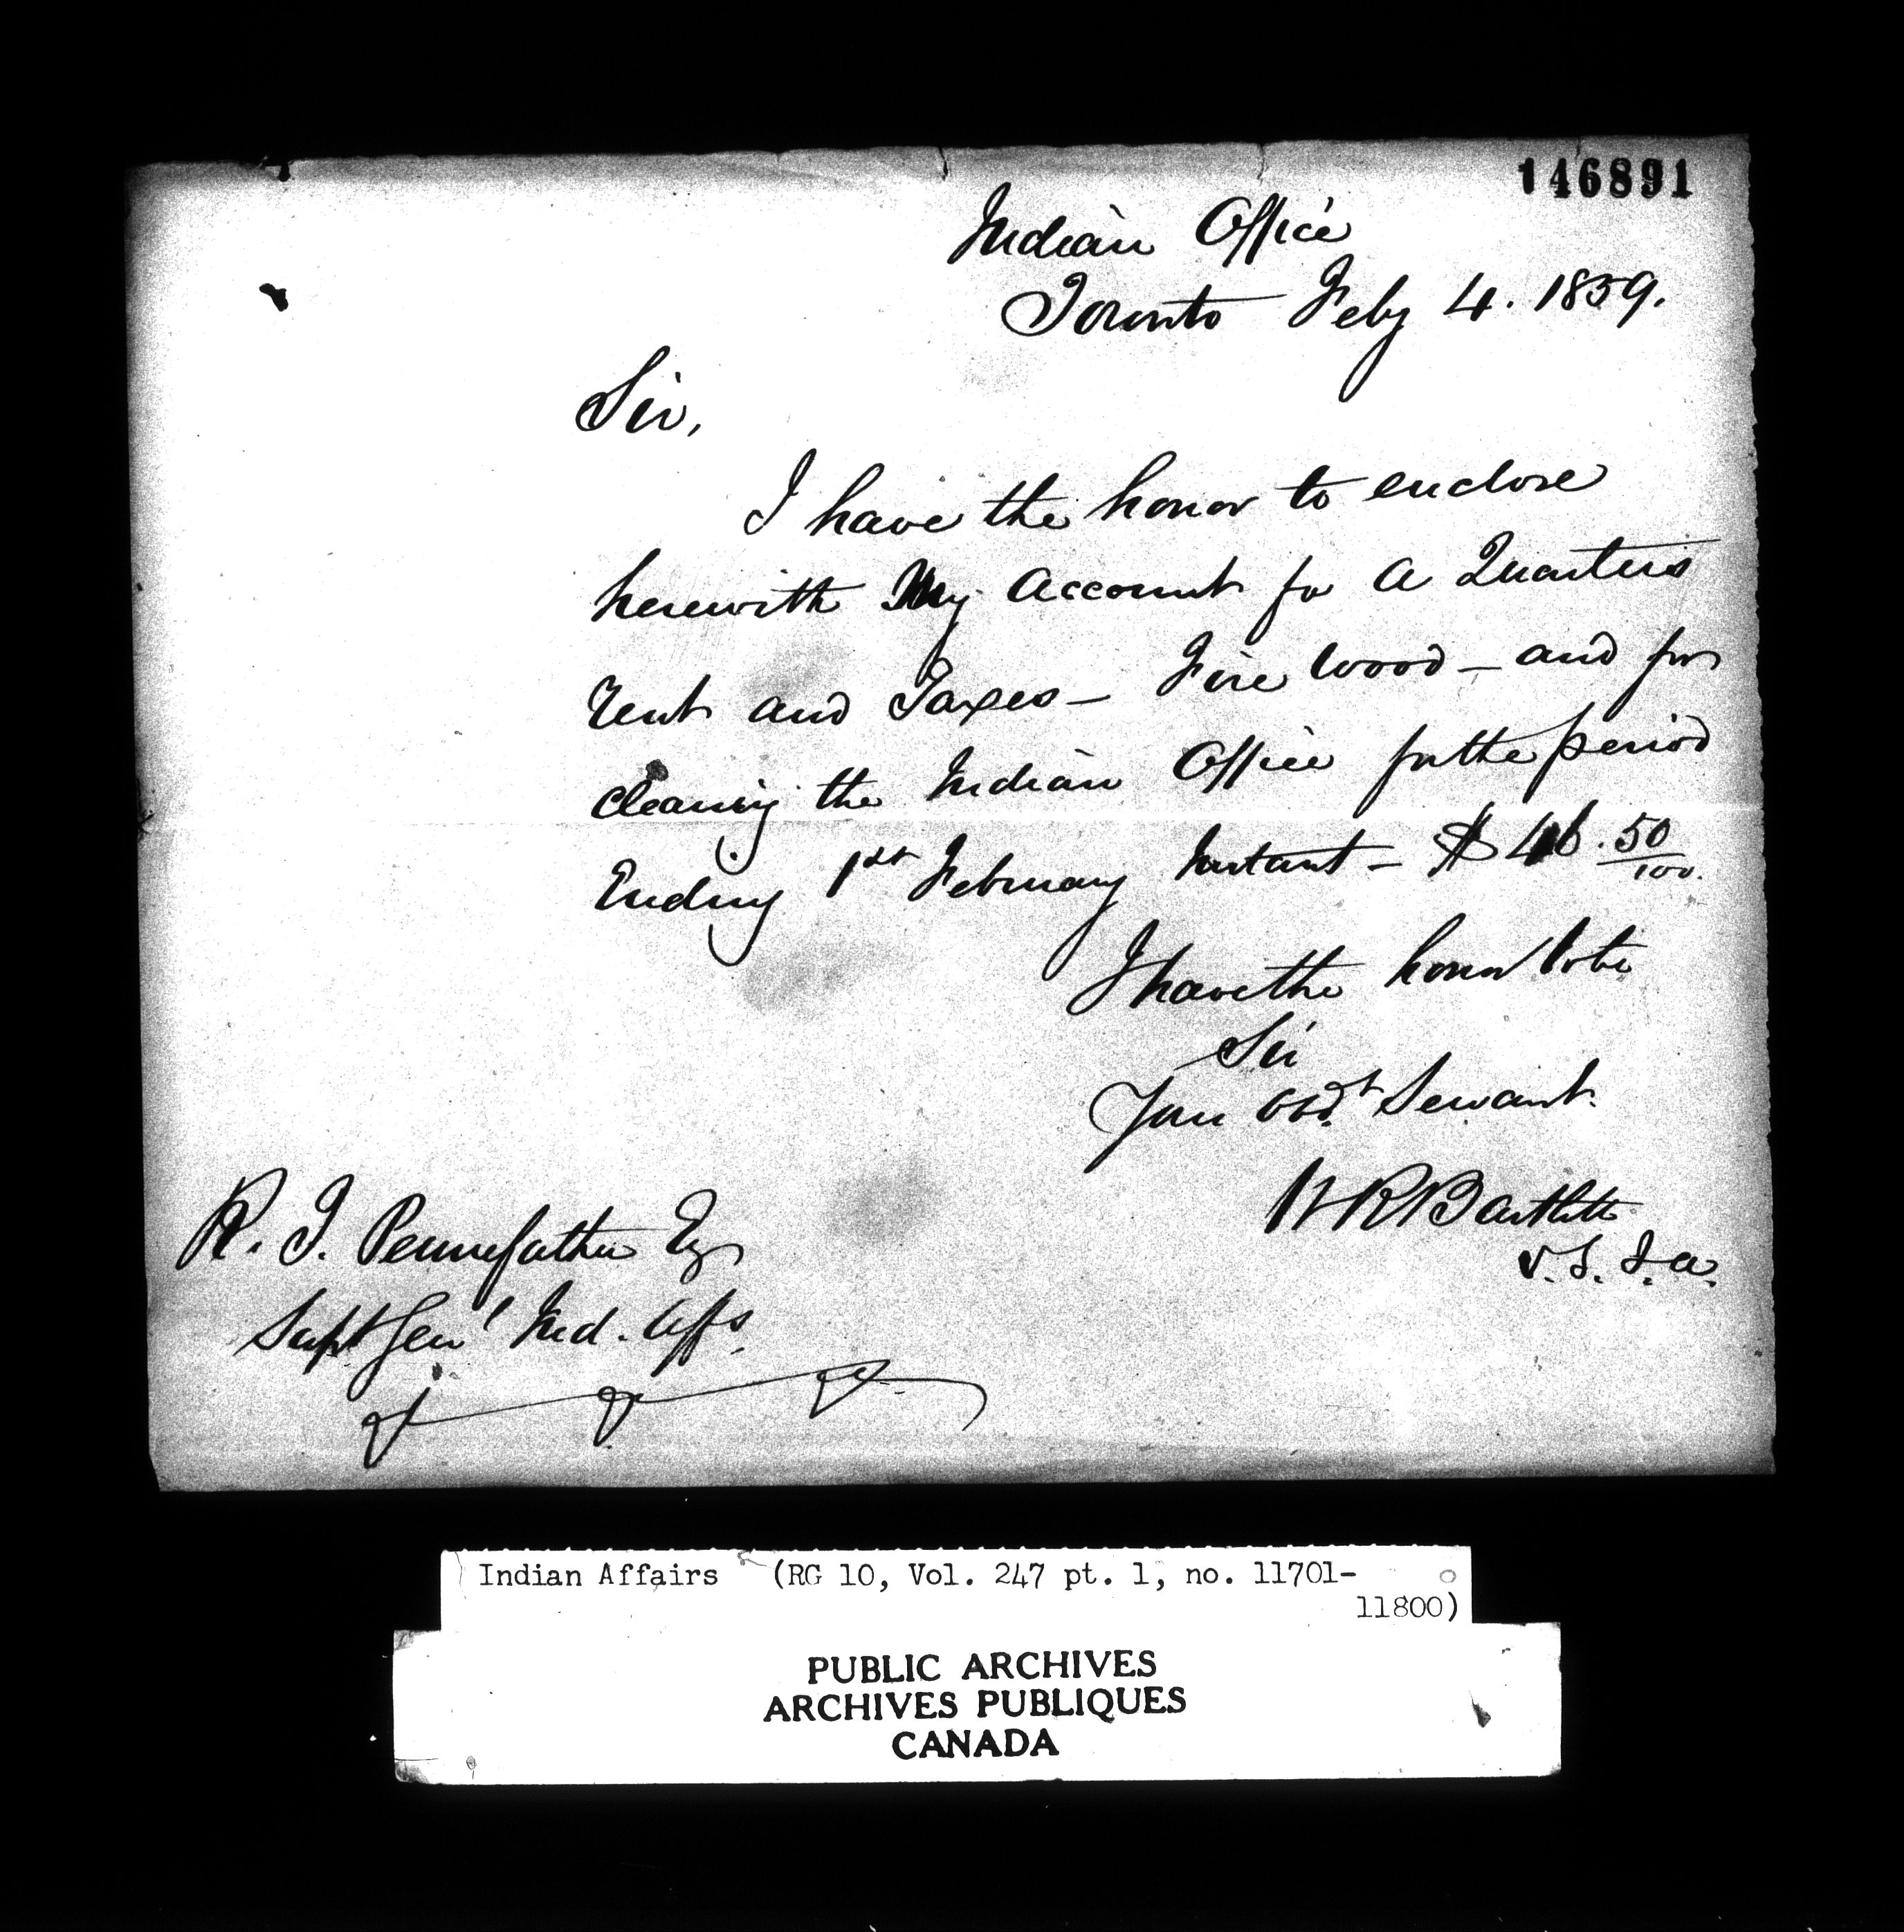 146891
Indian Office
Toronto Feby 4. 1859.
Sir,
I have the honor to enclose
herewith My Account for a Quarters
Rent and Taxes — Fire Wood — and for
cleaning the Indian Office for the period
Ending 1st February Instant — $46.50/100.
I have the honor to be
Sir
Your Obdt Servant.
W R Bartlett
V. S. I. A.
R. T. Pennefather Esq
Supt Genl Ind. Affs.
Indian Affairs (RG 10, Vol. 247 pt. 1, no. 11701-
11800)
PUBLIC ARCHIVES
ARCHIVES PUBLIQUES
CANADA